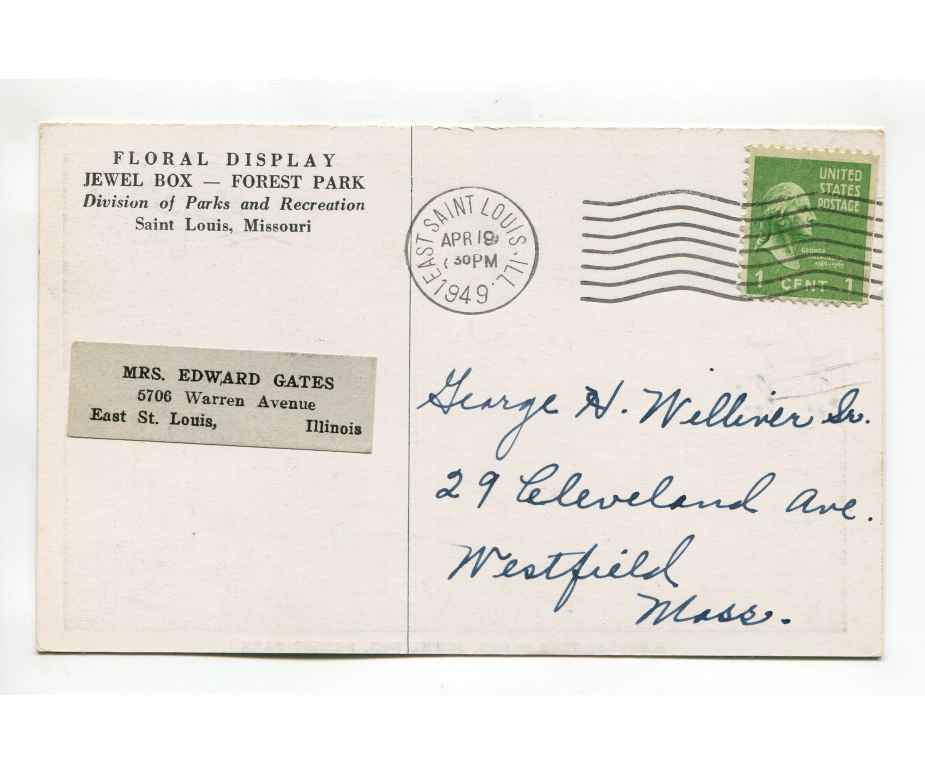 FLORAL DISPLAY
JEWEL BOX — FOREST PARK
Division of Parks and Recreation
Saint Louis, Missouri
EAST SAINT LOUIS, ILL.
APR 18
30 PM
1949
UNITED
STATES
POSTAGE
GEORGE
1 CENT 1
MRS. EDWARD GATES
5706 Warren Avenue
East St. Louis, Illinois
George H. Welliver Sr.
29 Cleveland Ave.
Westfield
Mass.